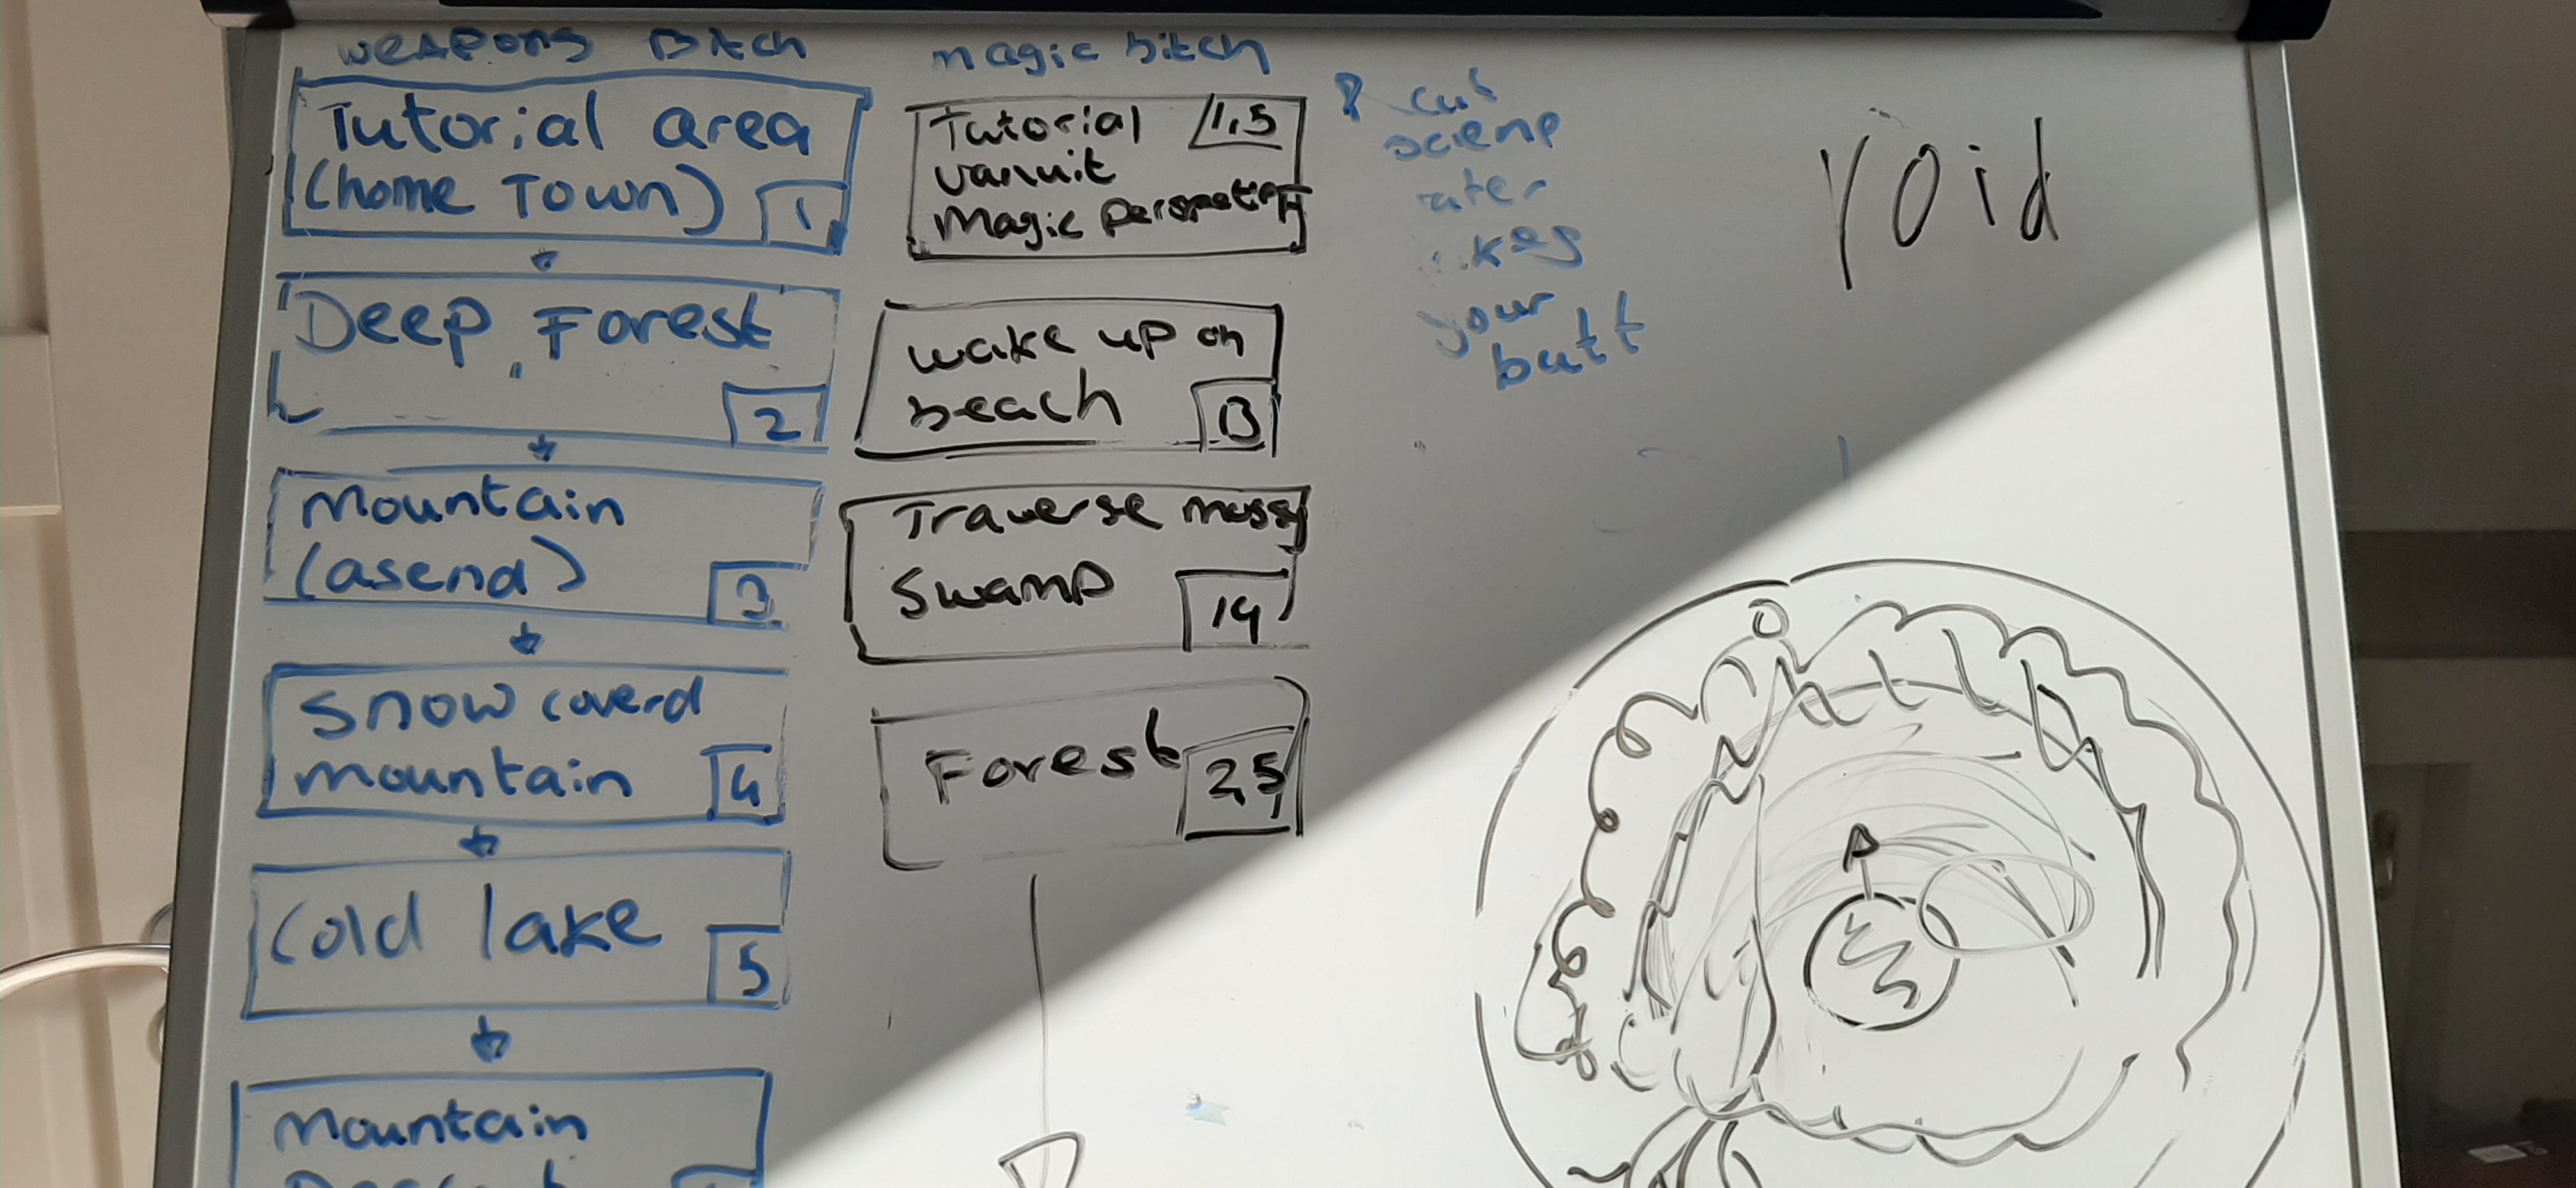 weapons Bitch
Tutorial area
(home Town)
1
Deep Forest
2
mountain
(asend)
3
snow coverd
mountain
4
Cold lake
5
mountain
magic bitch
Tutorial
1,5
vanuit
Magic
wake up on
beach
13
Traverse mossy
Swamp
14
Forest
2,5
cut
your
butt
void